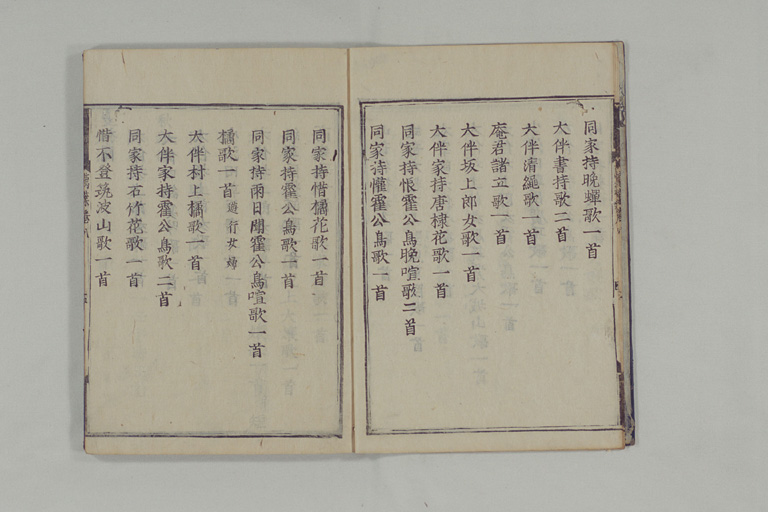 同家持晩蟬歌一首
大伴書持歌二首
大伴清繩歌一首
庵君諸立歌一首
大伴坂上郎女歌一首
大伴家持唐棣花歌一首
同家持恨霍公鳥晩喧歌二首
同家持懽霍公鳥歌一首
同家持惜橘花歌一首
同家持霍公鳥歌一首
同家持雨日聞霍公鳥喧歌一首
橘歌一首 遊行女婦
大伴村上橘歌一首
大伴家持霍公鳥歌二首
同家持石竹花歌一首
惜不登筑波山歌一首